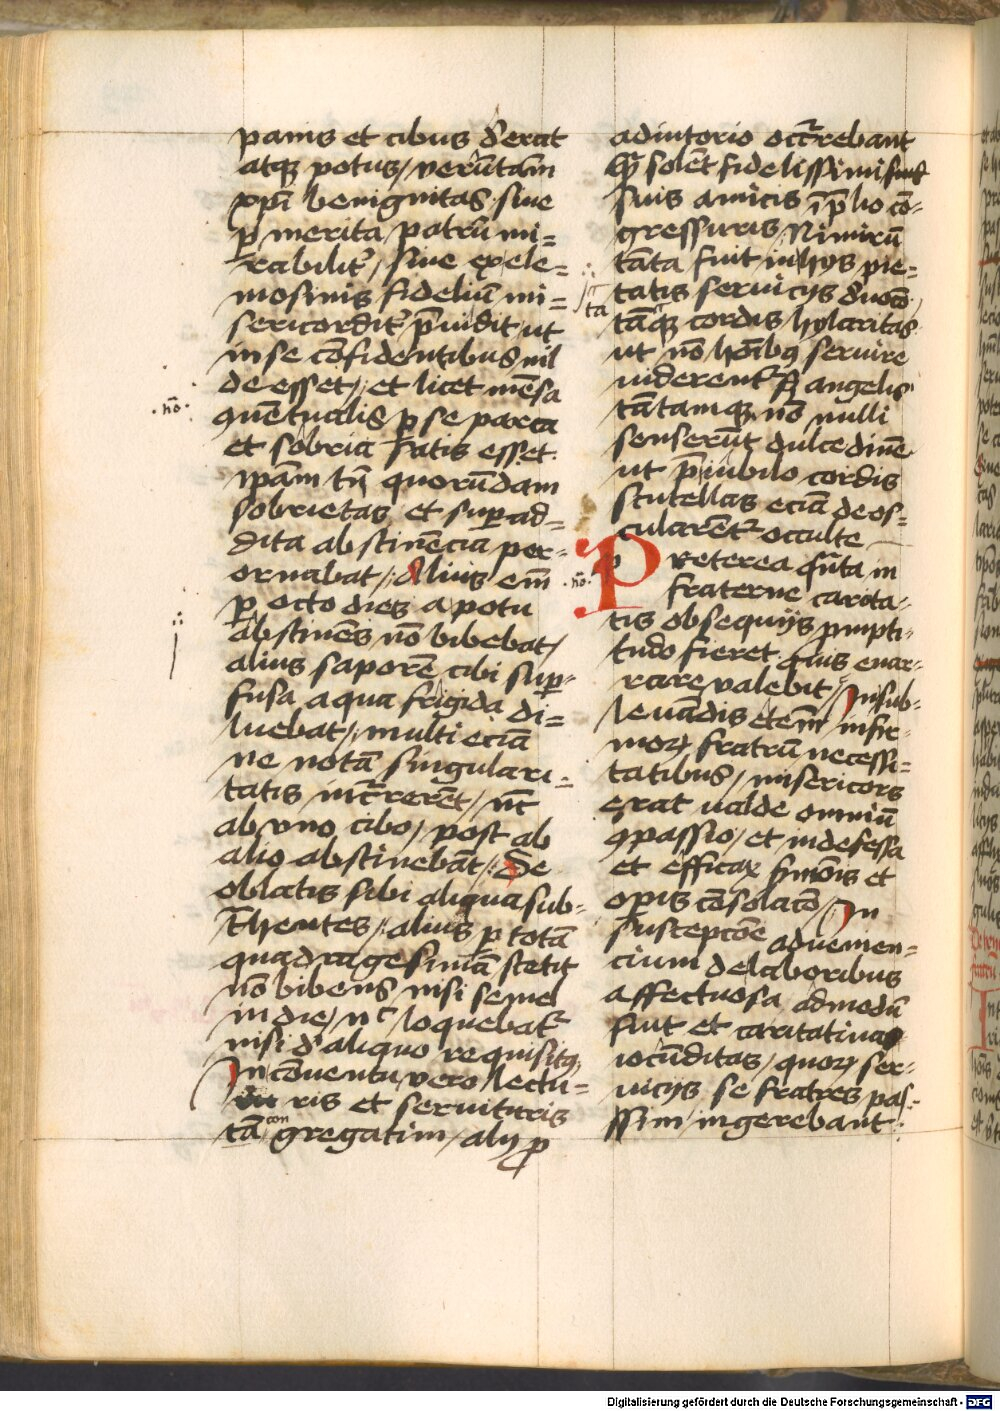 panis et cibus deerat
atqꝫ potus / verūtam̄
xpī benignitas siue
ꝑ merita patrū mi=
rabilit᷑ / siue ex ele=
mosinis fideliū mi=
sericordit᷑ p̄uidit ut
in se cōfidentibus nil
de esset / et licet mēsa
·nō·
quētualis ꝑ se parca
et sobria satis esset·
ip̄am tn̄ quorūdam
sobrietas et suꝑad=
dita abstinēcia per=
ornabat / Alius em̄
ꝑ octo dies a potu
abstinēs nō bibebat /
alius saporē cibi suꝑ=
fusa aqua frigida di=
luebat / multi eciā
ne notā singulari=
tatis incᷓrerēt / nūc
ab vno cibo / post ab
alio abstinebāt / De
oblatis sibi aliqua sub=
t᷑hentes / alius ꝑ totā
quadragesimā stetit
nō bibens nisi semel
in die / nc̄ loquebat᷑
nisi d̓ aliquo requisitꝰ
In cōuentu vero lectu=
ris et seruituris
tā con gregatim / alij ꝓ
adiutorio occᷓrebant
qͣ solēt fidelissimi
suis amicis ī p̄lio cō=
gressuris / Nimirū
tāta fuit in hijs pie=
ta
tatis seruicijs deuoc̄o
tāqꝫ cordis hylaritas
ut nō hoībꝰ seruire
viderent᷑ s̓ angelis
tātamqꝫ nō nulli
senserūt dulcedinē
ut p̄ iubilo cordis
scutellas eciā deos=
cularēt᷑ occulte
·nō·
Preterea qͣnta in
fraterne carita=
tis obsequijs ꝓmpti=
tudo fieret quis enar=
rare valebit / In sub=
leuādis eteī infir=
moꝝ fratrū necessi=
tatibus / misericors
erat valde omniū
ꝯpassio / et indefessa
et efficax s̓monis et
opis cōsolac̄o / In
suscepc̄oe aduenien=
cium de laboribus
affectuosa admodū
fuit et caritatiua
iocūditas / quoꝝ ser=
uicijs se fratres pas=
sim / ingerebant
Digitalisierung gefördert durch die Deutsche Forschungsgemeinschaft - DFG